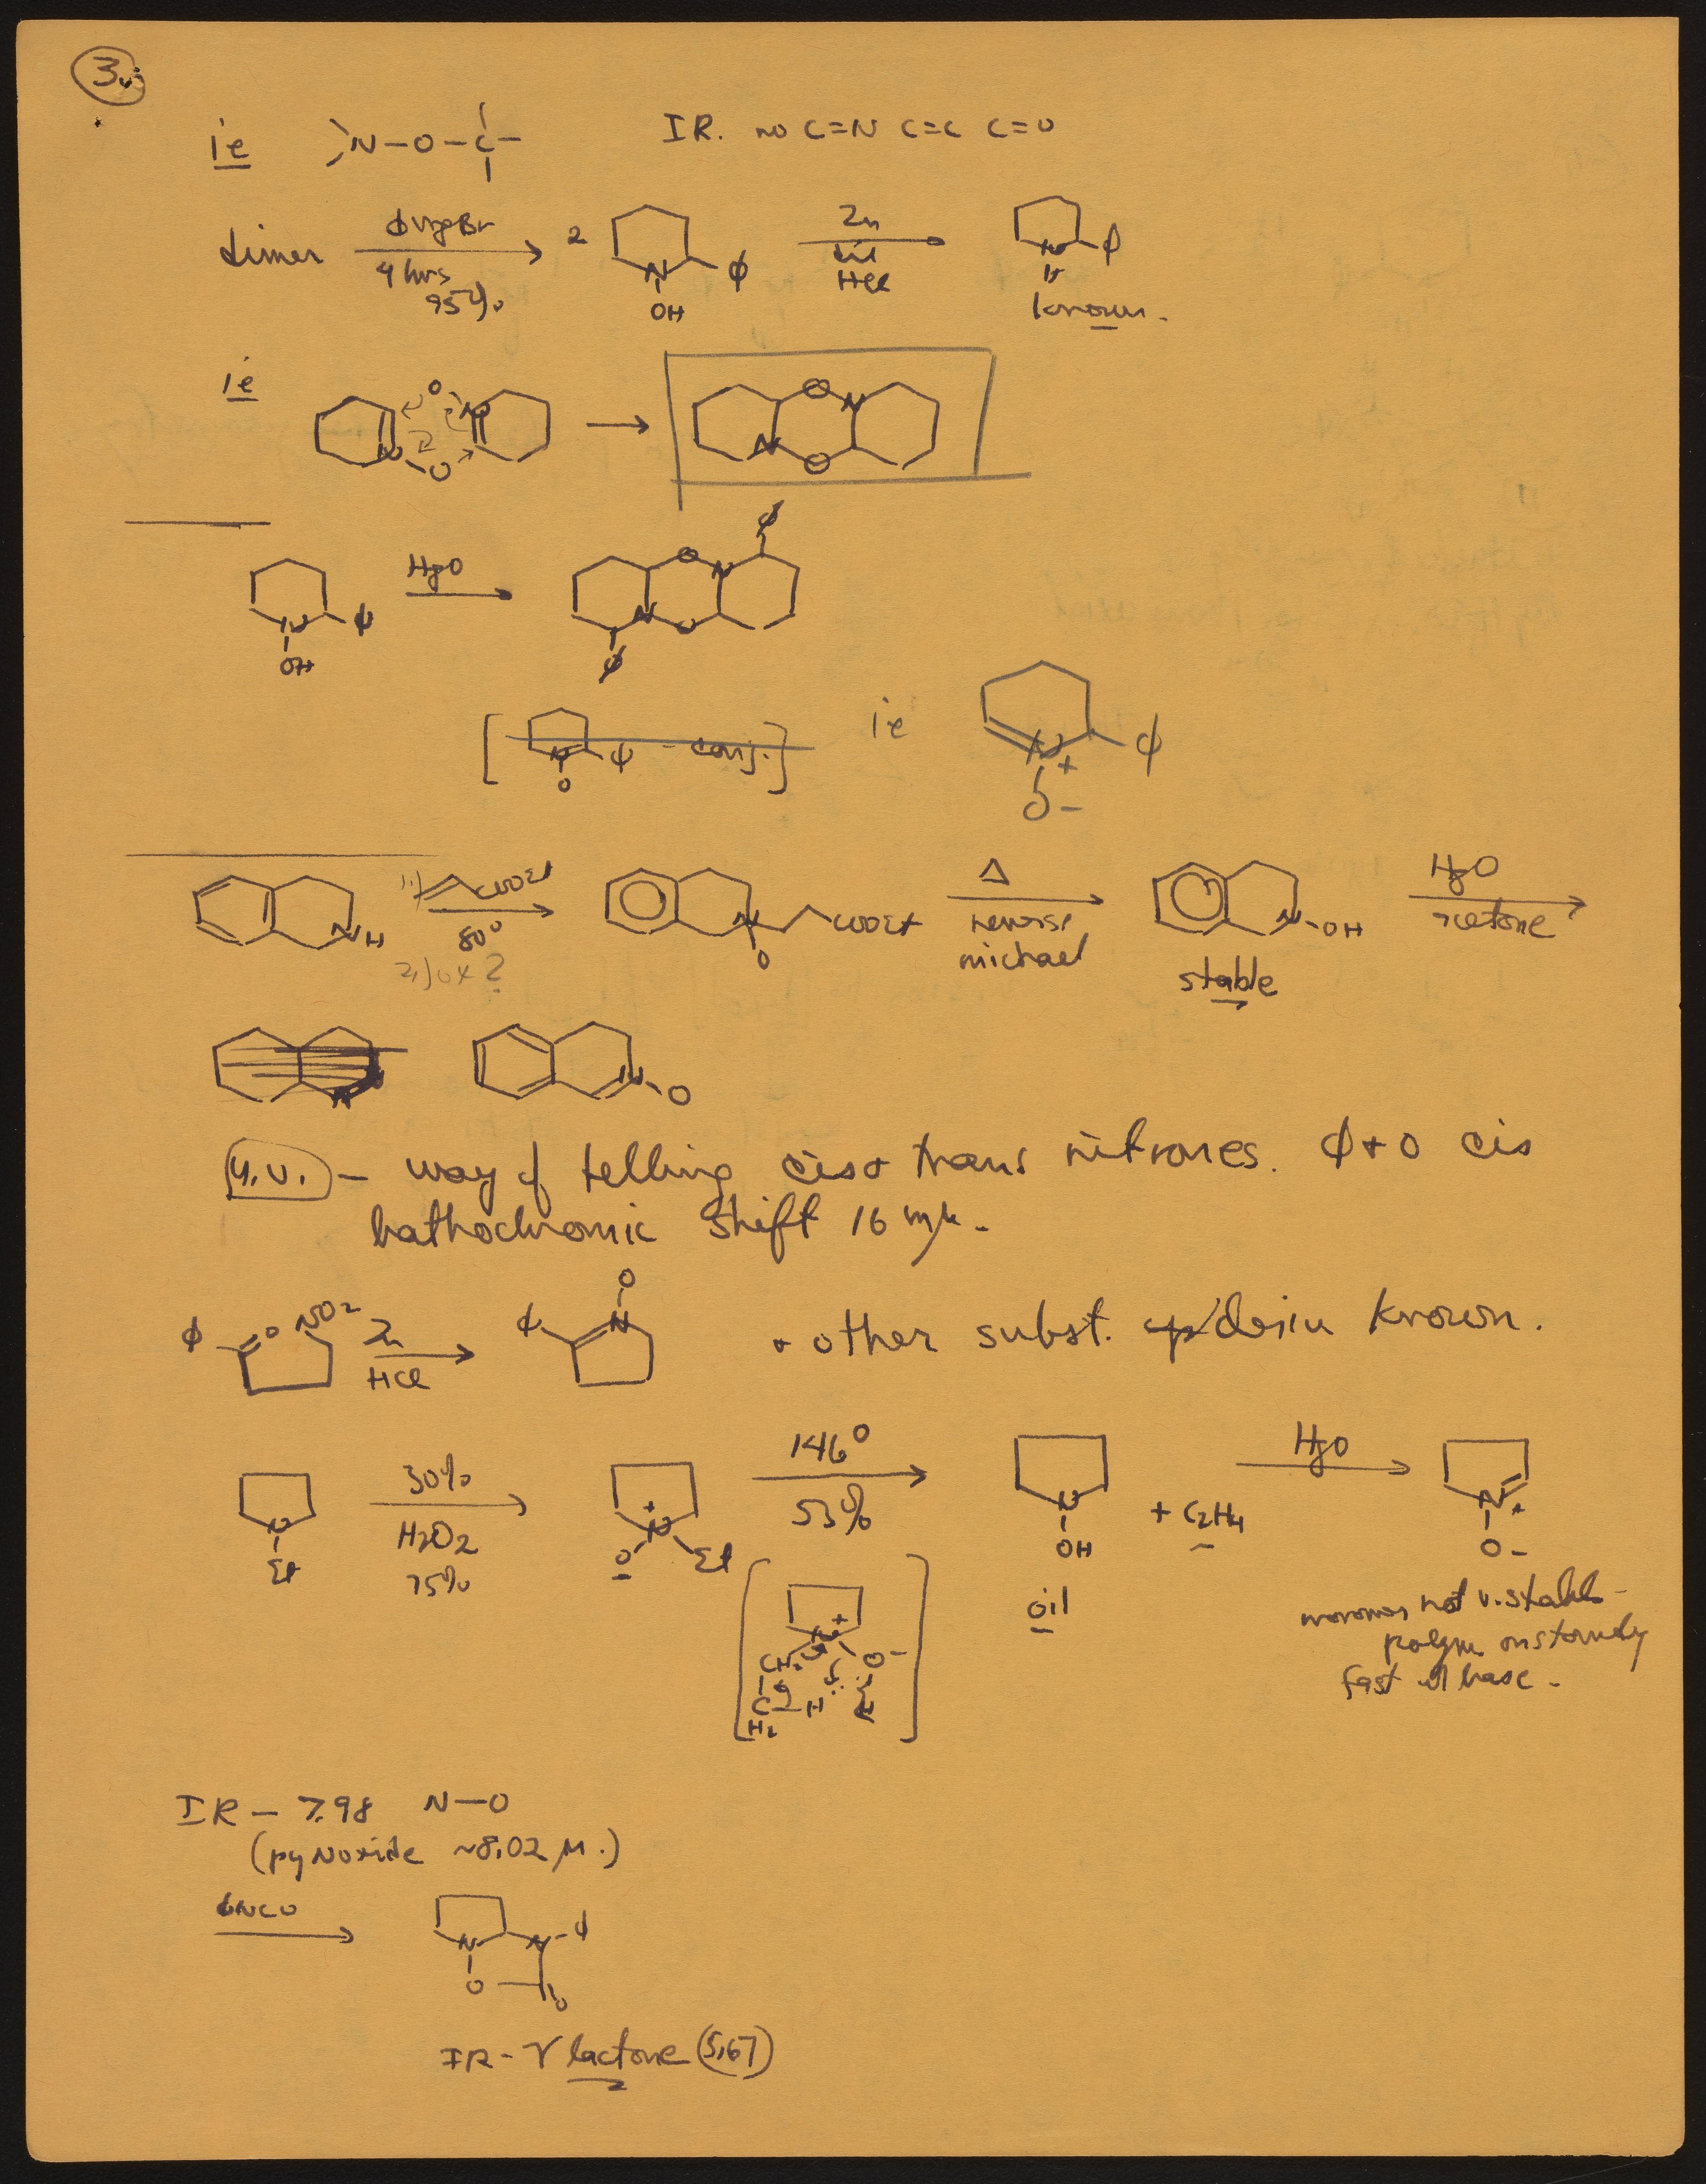 3.
ie >N-O-C- IR. no C=N C=C C=O
dimer ϕMgBr 4 hrs 95% 2 N OH ϕ Zn dil HCl N H ϕ
known.
ie O N N O O N N O
N OH ϕ HgO ϕ O N N O ϕ
[N O ϕ - conj.] ie N + O - ϕ
NH 1.) COOEt 80° 2.) ox? N O COOEt Δ reverse michael N-OH stable HgO acetone
N N-O
U.V. - way of telling cis & trans nitrones. ϕ + O cis
bathochromic shift 16 mμ.
ϕ O NO2 Zn HCl ϕ N O + other subst. known.
N Et 30% H2O2 75% N + O - Et 146° 53% N OH + C2H4 HgO N + O -
oil
[N + CH2 C H2 H O - H]
monomer not v. stable -
fast base.
IR - 7.98 N-O
(py N oxide ~8.02 μ.)
ϕNCO N N-ϕ O O
IR - γ lactone (5.67)